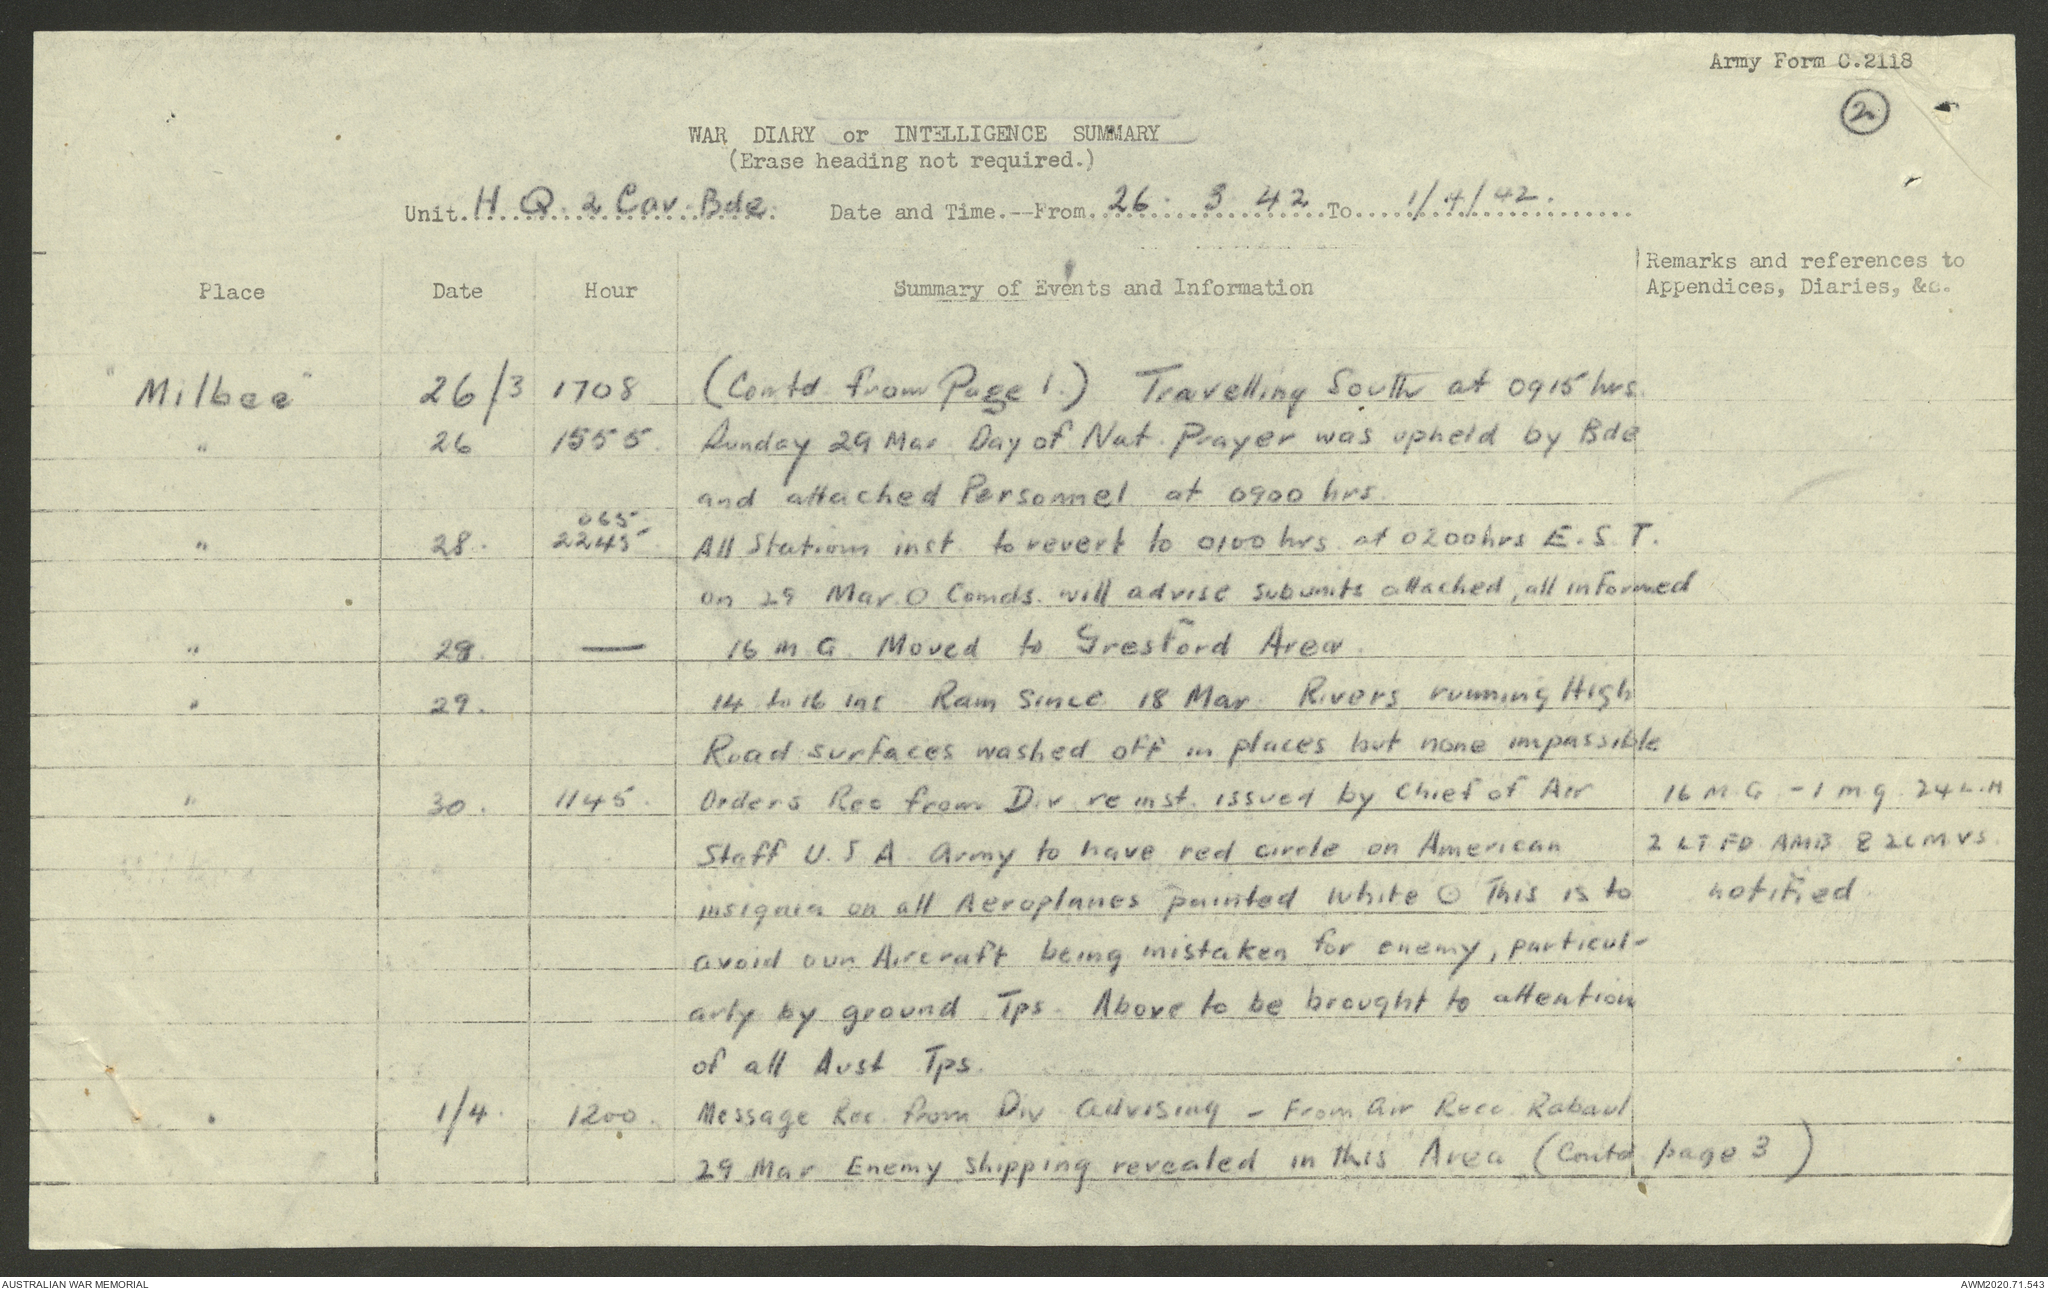 Army Form C.2118
2
WAR DIARY or INTELLIGENCE SUMMARY
(Erase heading not required.)
Unit. H Q 2 Cav Bde. Date and Time.--From 26. 3 42 To 1/4/42.
Place Date Hour Summary of Events and Information Remarks and references to
Appendices, Diaries, &c.
"Milbee" 26/3 1708 (Contd from Page 1.) Travelling South at 0915 hrs.
" 26 1555. Sunday 29 Mar Day of Nat. Prayer was upheld by Bde
and attached Personnel at 0900 hrs.
065
" 28. 2245 All Stations inst. to revert to 0100 hrs at 0200hrs E.S.T.
on 29 Mar. O Comds. will advise subunits attached, all informed
" 29. — 16 M G. Moved to Gresford Area.
" 29. 14 to 16 ins Rain since 18 Mar. Rivers running High
Road surfaces washed off in places but none impassible
" 30. 1145. Orders Rec from Div re inst. issued by Chief of Air 16 M.G. - 1 m.g. 24 L.H
Staff U.S.A. Army to have red circle on American 2 LT FD AMB & 2 L M V S.
insignia on all Aeroplanes painted white O This is to notified
avoid our Aircraft being mistaken for enemy, particul-
arly by ground Tps. Above to be brought to attention
of all Aust Tps.
" 1/4. 1200. Message Rec. from Div advising - From Air Recc. Rabaul
29 Mar Enemy shipping revealed in this Area (Contd page 3)
AUSTRALIAN WAR MEMORIAL AWM2020.71.543